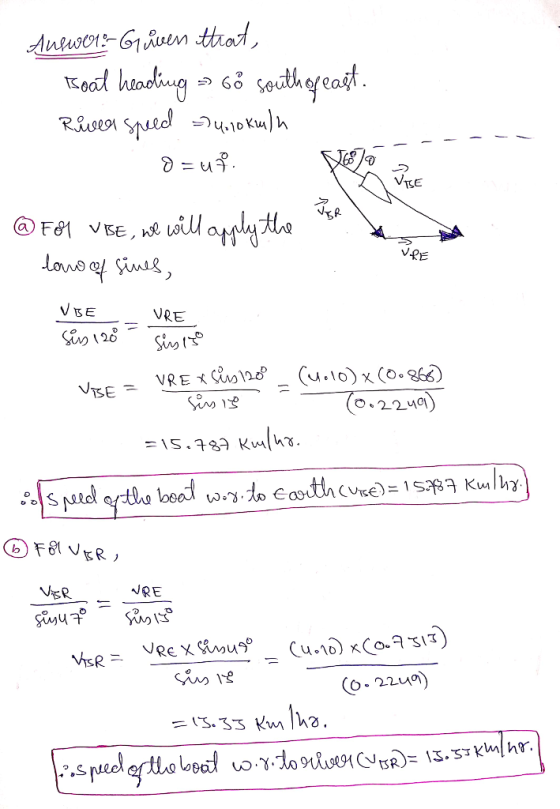 Answer:- Given that,
Boat heading ⇒ 60° south of east.
River speed ⇒ 4.10 km/h
θ = 47°.
60° θ
V⃗BE
V⃗BR
V⃗RE
(a) For VBE, we will apply the
law of sines,
VBE / sin 120° = VRE / sin 13°
VBE = VRE x sin 120° / sin 13° = (4.10) x (0.866) / (0.2249)
= 15.787 km/hr.
∴ Speed of the boat w.r. to Earth (VBE) = 15.787 km/hr.
(b) For VBR,
VBR / sin 47° = VRE / sin 13°
VBR = VRE x sin 47° / sin 13° = (4.10) x (0.7313) / (0.2249)
= 13.33 km/hr.
∴ speed of the boat w.r. to river (VBR) = 13.33 km/hr.